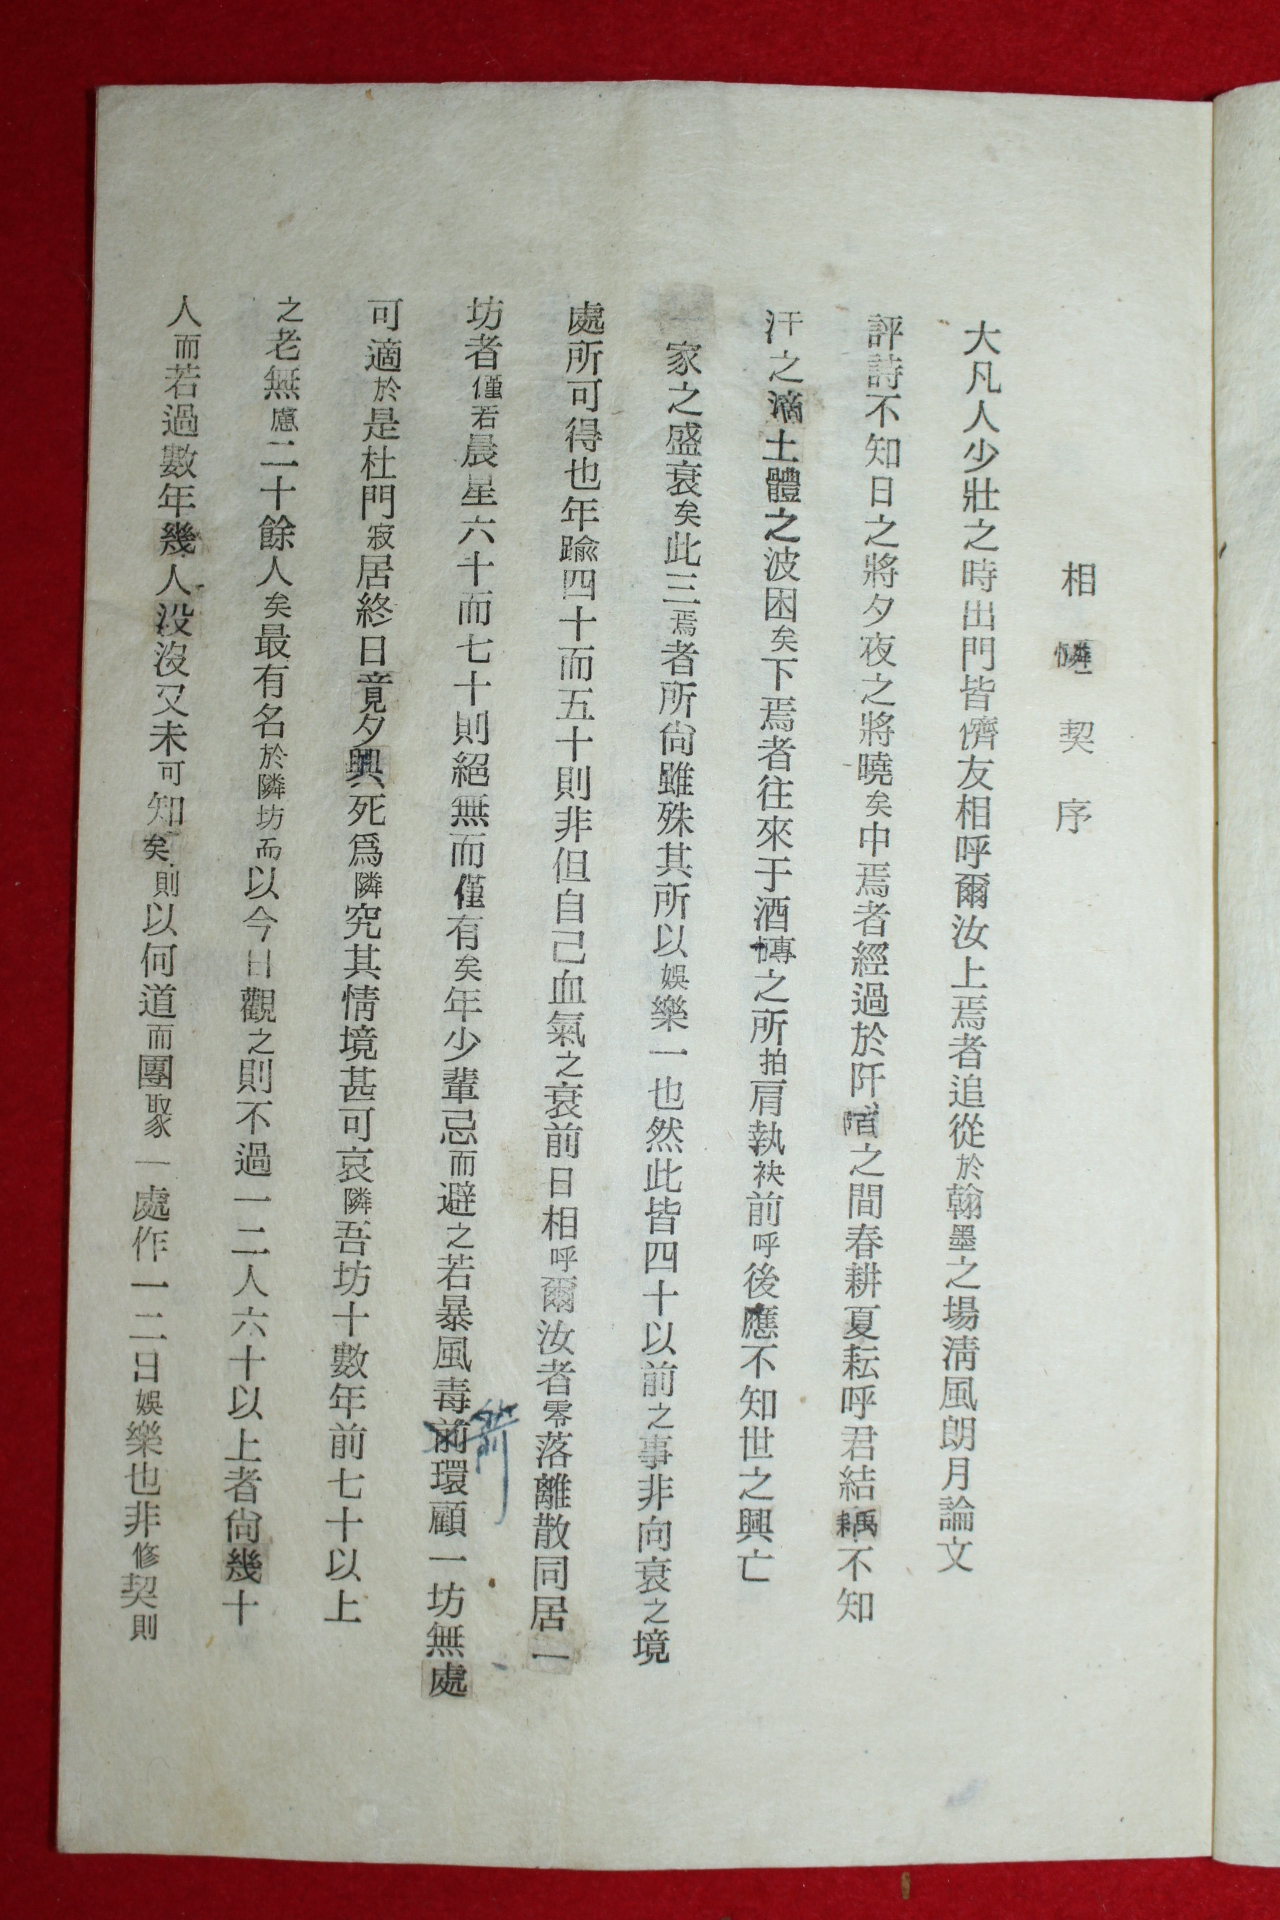 相憐契序
大凡人少壯之時出門皆儕友相呼爾汝上焉者追從於翰墨之場淸風朗月論文
評詩不知日之將夕夜之將曉矣中焉者經過於阡陌之間春耕夏耘呼君結耦不知
汗之滴土體之波困矣下焉者往來于酒慱之所拍肩執袂前呼後應不知世之興亡
家之盛衰矣此三焉者所尙雖殊其所以娛樂一也然此皆四十以前之事非向衰之境
處所可得也年踰四十而五十則非但自己血氣之衰前日相呼爾汝者零落離散同居一
坊者僅若晨星六十而七十則絕無而僅有矣年少輩忌而避之若暴風毒箭環顧一坊無處
可適於是杜門寂居終日竟夕興死爲隣究其情境甚可哀隣吾坊十數年前七十以上
之老無慮二十餘人矣最有名於隣坊而以今日觀之則不過一二人六十以上者尙幾十
人而若過數年幾人没沒又未可知矣則以何道而團聚一處作一二日娛樂也非修契則